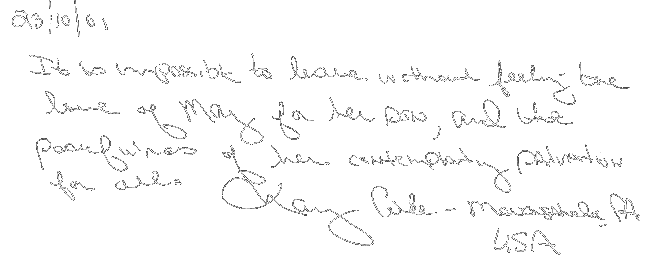 23/10/01
It is impossible to leave without feeling the
love of Mary for her son, and the
peacefulness of her contemplating salvation
for all.
Mary - PA
USA